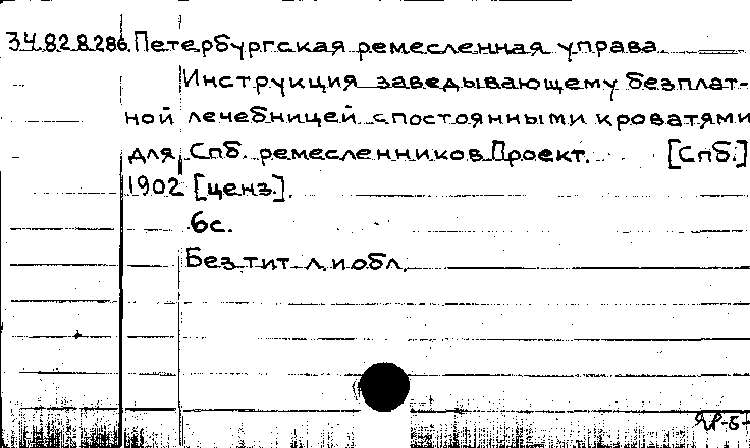 34.82.8.286. Петербургская ремесленная управа.
Инструкция заведывающему безплат-
ной лечебницей с постоянными кроватями
для Спб. ремесленников. Проект. [Спб.]
1902 [ценз.].
6с.
Без тит. л. и обл.